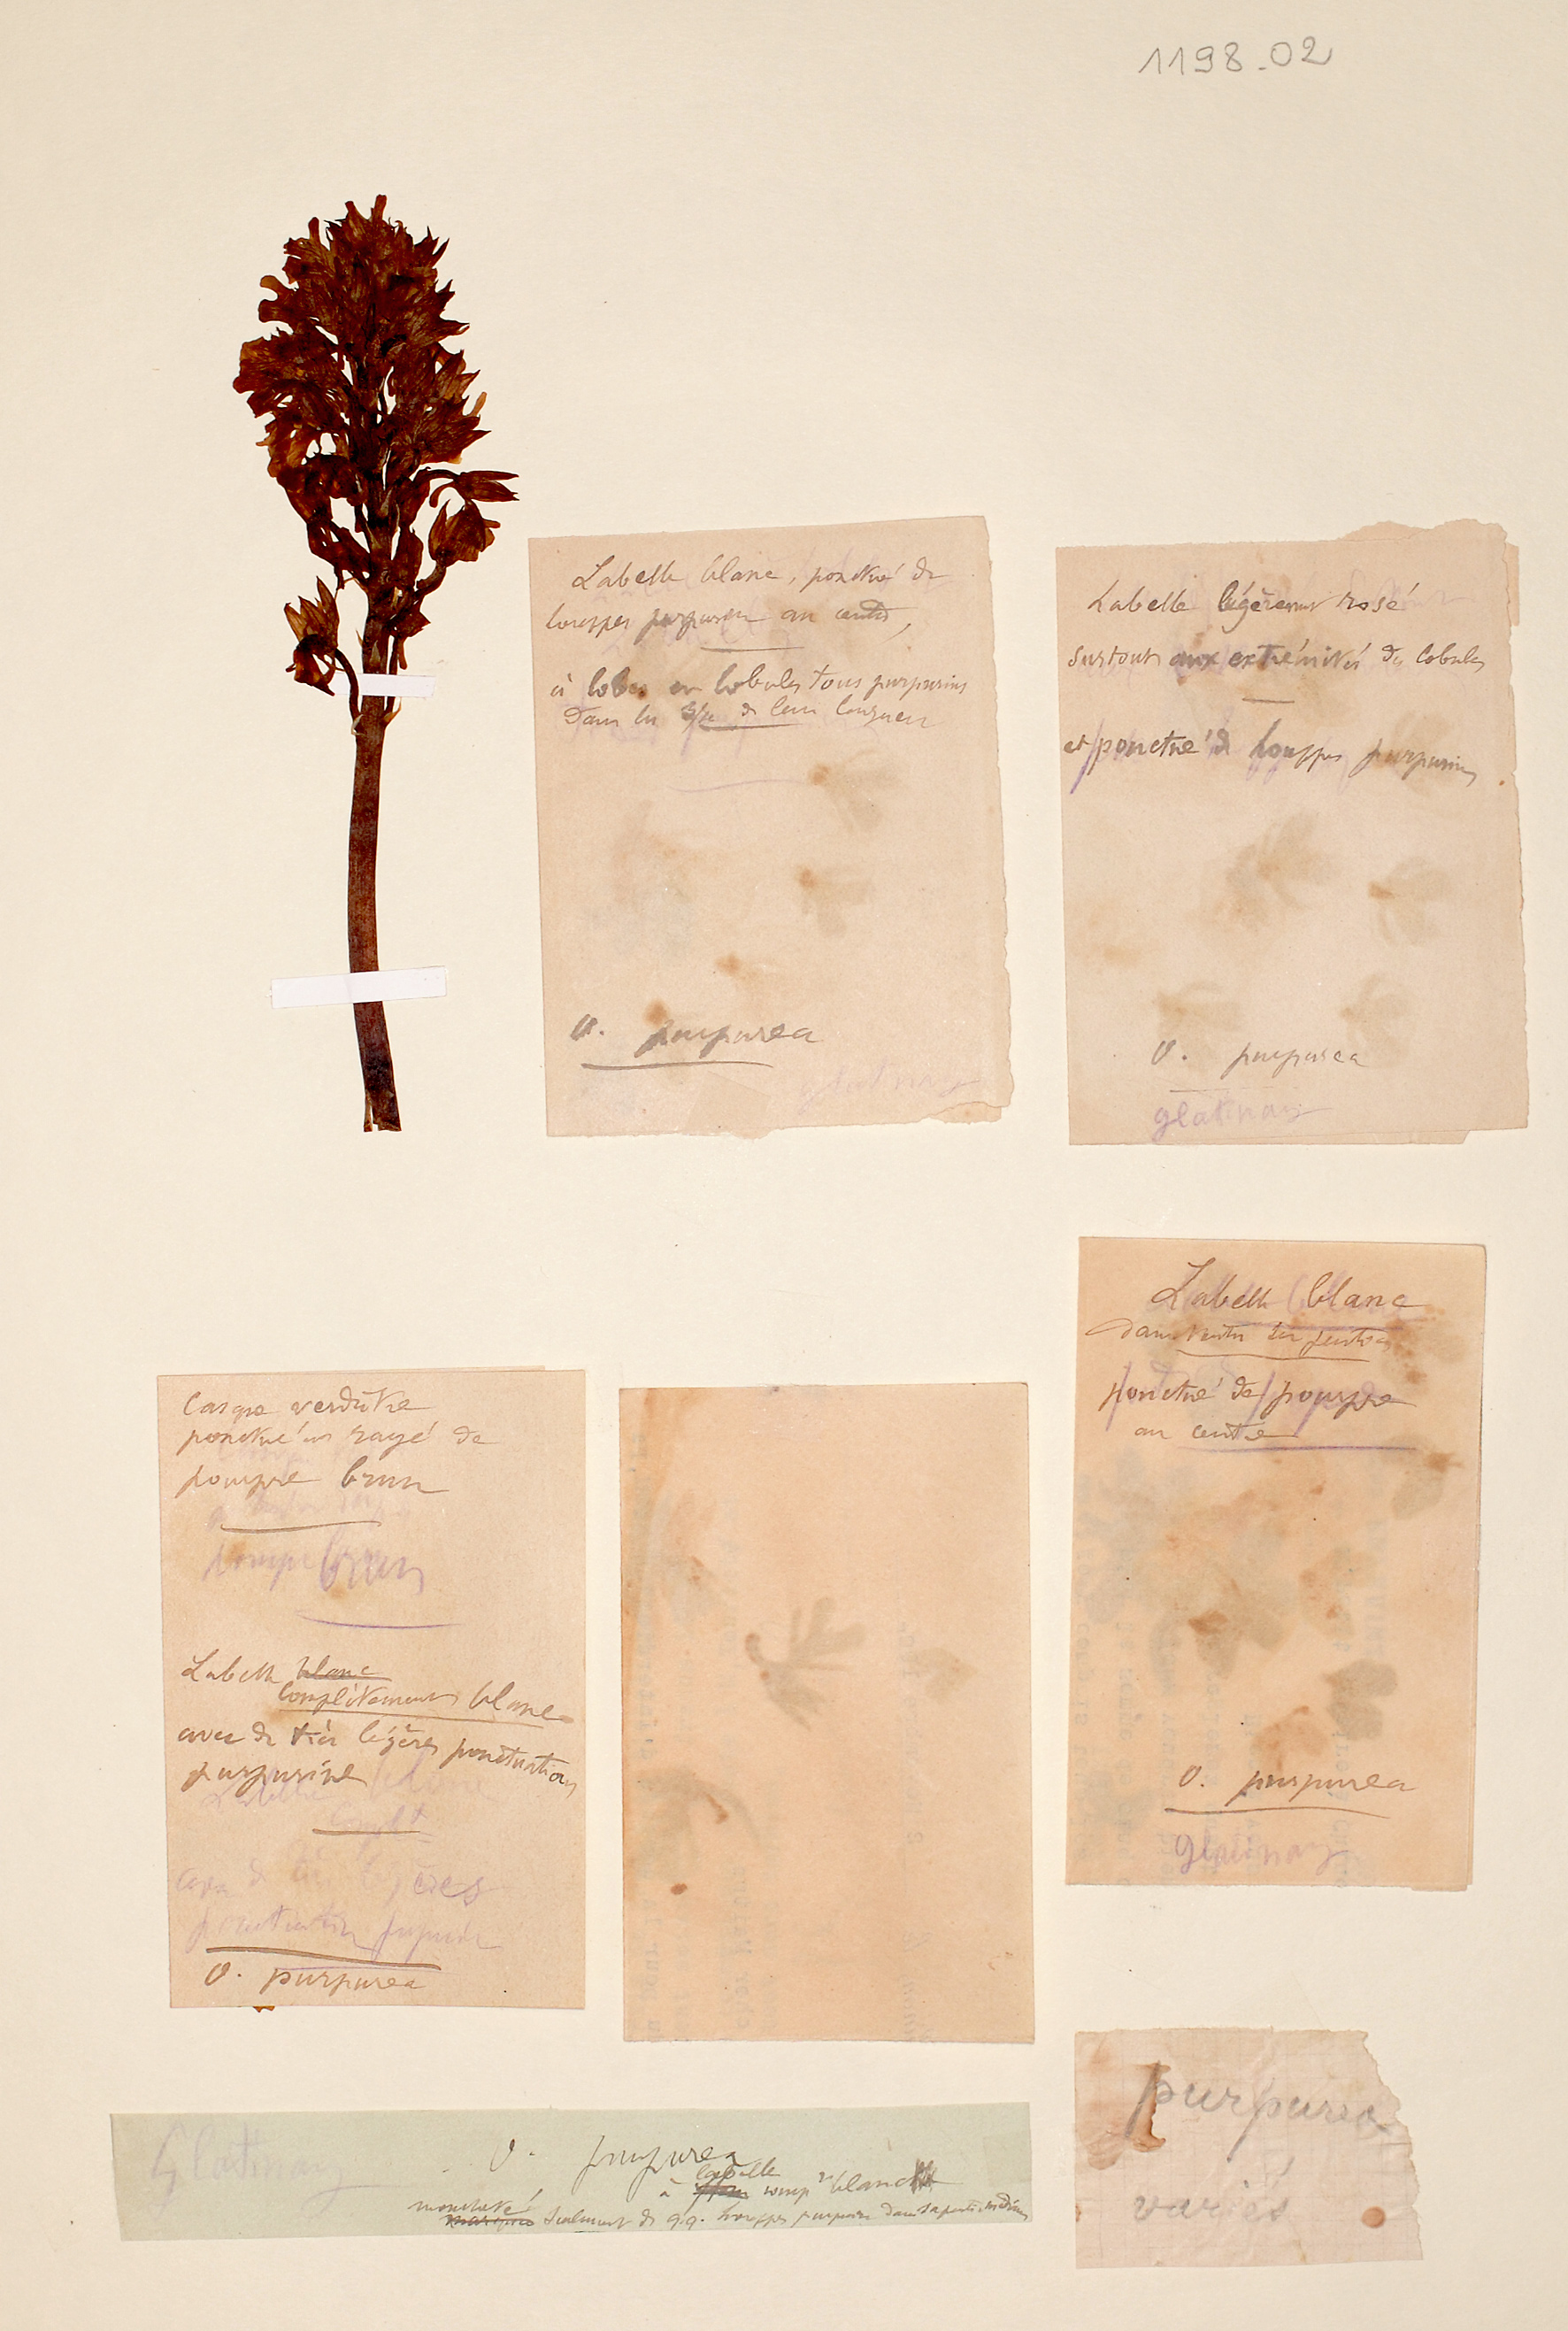 1198-02
Labelle blanc, ponctué de
houppes purpurin au centre,
à lobes et lobules tous purpurins
dans les de leur longueur
O. purpurea
glatinay
Labelle légèrement rosé
surtout aux extrémités des lobules
et ponctué de houppes purpurines
O. purpurea
glatinay
Labelle blanc
ponctué de pourpre
au centre
O. purpurea
Glatinay
Casque verdâtre
ponctué et rayé de
pourpre brun
pourpre brun
Labelle blanc
complètement blanc
avec de très légères ponctuations
purpurine
Labelle blanc
complt
légères
ponctuation
O. purpurea
Glatinay
O. purpurea
labelle
à comp blanc
moucheté
seulement de q.q. houppes purpurin dans sa partie médiane
purpurea
variés